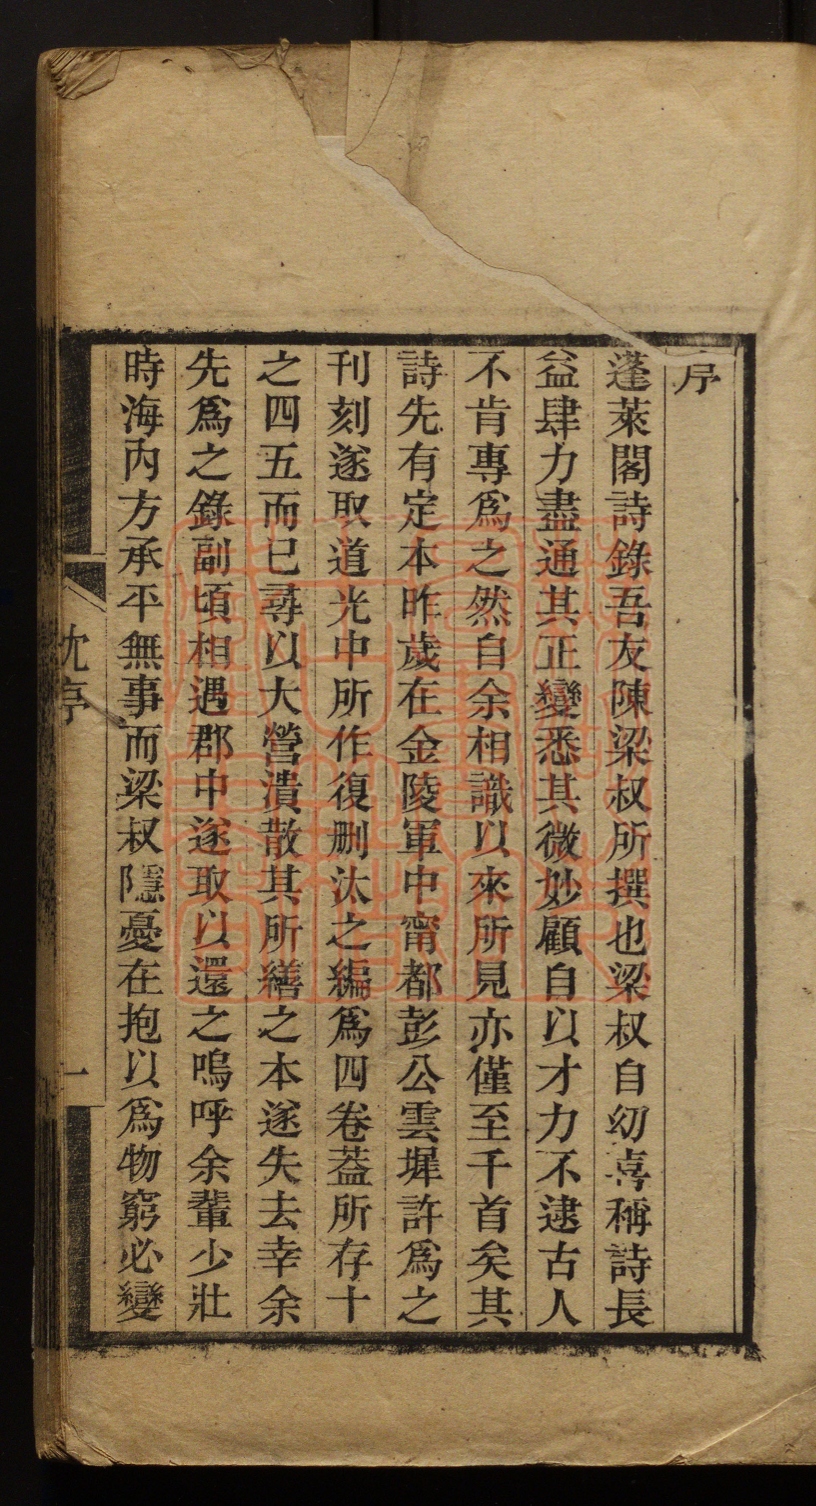 序
蓬萊閣詩錄吾友陳梁叔所撰也梁叔自幼喜稱詩長
益肆力盡通其正變悉其微妙顧自以才力不逮古人
不肯專爲之然自余相識以來所見亦僅至千首矣其
詩先有定本昨歲在金陵軍中甯都彭公雲墀許爲之
刊刻遂取道光中所作復刪汰之編爲四卷葢所存十
之四五而已尋以大營潰散其所繕之本遂失去幸余
先爲之錄副頃相遇郡中遂取以還之嗚呼余輩少壯
時海內方承平無事而梁叔隱憂在抱以爲物窮必變
沈序
一